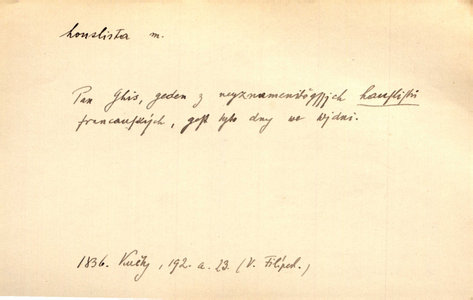 houslista m.
Pan Ghis, geden z neyznamenitěgssjch hauslistů
francauských, gest tyto dny we Wjdni.
1836. Květy, 192. a. 23. (V. Filípek.)